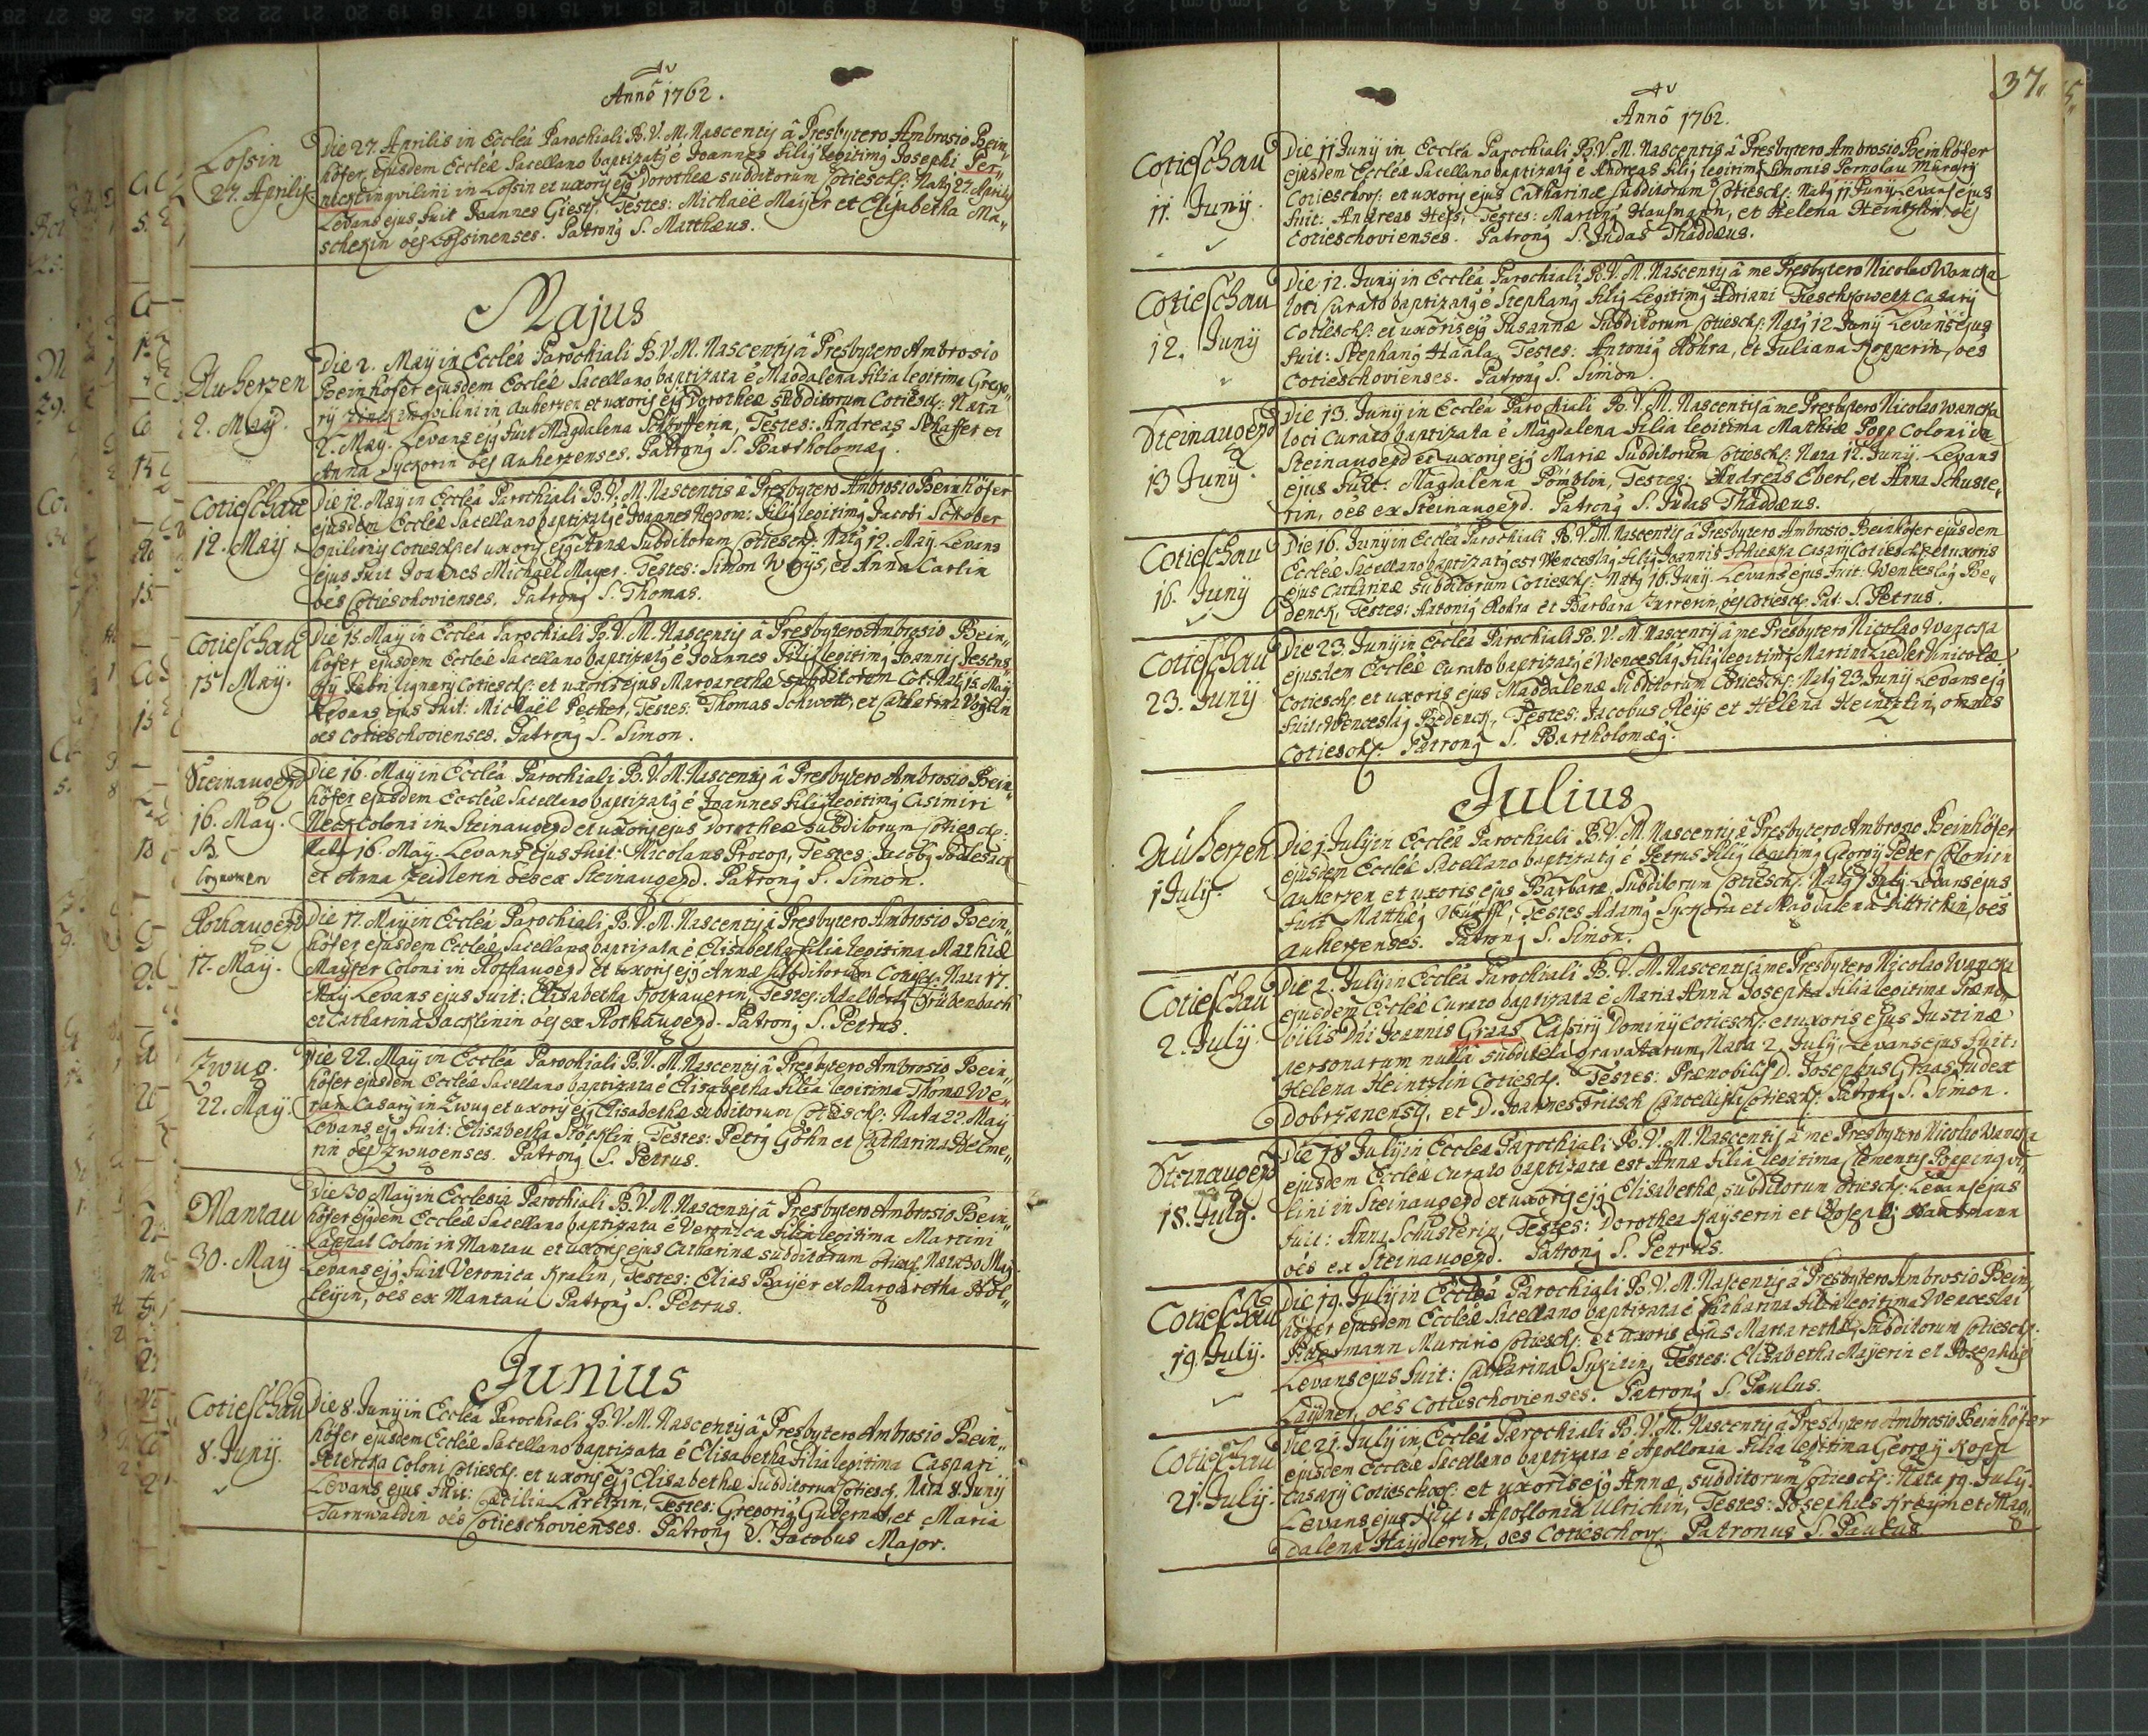 Anno 1762.
Lossin
27. Aprilis
Die 27. Aprilis in Eccléa Parochiali B. V. M. Nascentis â Presbytero Ambrosio Bein„
höfer, ejusdem Eccleæ Sacellano baptizatg é Joannes filig legitimg Josephi Per„
inqvilini in Lossin et uxoris ejg Dorotheæ subditorum Cotiesch: Natg 27 Aprilis
Levans ejus fuit Joannes Giesl, Testes: Michaël Majer et Elisabetha Ma„
schekin oēs Lossinenses. Patrong S. Matthæus.
Majus
Auherzen
2. Maÿ.
Die 2. Maÿ in Eccléa Parochiali B. V. M. Nascentis â Presbytero Ambrosio
Beinhöfer ejusdem Eccleæ Sacellano baptizata é Magdalena filia legitima Grego„
rÿ inqvilini in Auherzen et uxoris ejg Dorotheæ subditorum Cotiesch: Nata
2. Maÿ. Levans ejg fuit Magdalena Schrofferin, Testes: Andreas Schaffer et
Anna Syckorin oēs Auherzenses. Patrong S. Bartholomæg.
Cotieschau
12. Maÿ
Die 12. Maÿ in Eccléa Parochiali B. V. M. Nascentis â Presbytero Ambrosio Beinhöfer
ejusdem Eccleæ Sacellano baptizatg é Joannes Nepom: filig legitimg Jacobi Schober
opilionis Cotiesch: et uxoris ejg Annæ Subditorum Cotiesch: Natg 12. Maÿ. Levans
ejus fuit Joannes Michaël Mayer. Testes: Simon Weÿs, et Anna Carlin
oēs Cotieschovienses. Patrong S. Thomas.
Cotieschau
15 Maÿ.
Die 15. Maÿ in Eccléa Parochiali B. V. M. Nascentis â Presbytero Ambrosio Bein„
höfer, ejusdem Eccleæ Sacellano baptizatg é Joannes filig legitimg Joannis Jesens„
kÿ Fabri lignarÿ Cotiesch: et uxoris ejus Margarethæ subditorum Cot: Natg 15. Maÿ
Levans ejus fuit: Michaël Pecher, Testes: Thomas Schwett, et Catharina Voglin
oēs Cotieschovienses. Patrong S. Simon.
Steinaugezd
16. Maÿ.
Cognomen
Die 16. Maÿ in Eccléa Parochiali B. V. M. Nascentis â Presbytero Ambrosio Bein„
höfer ejusdem Eccleæ Sacellano baptizatg é Joannes filig legitimg Casimiri
Neck Coloni in Steinaugezd et uxoris ejus Dorotheæ subditorum Cotiesch:
Natg 16. Maÿ. Levans ejus fuit: Nicolaus Procop, Testes: Jacobg Podlesack
et Anna Zeidlerin oēs ex Steinaugezd. Patrong S. Simon.
Rothaugezd
17. Maÿ.
Die 17. Maÿ in Eccléa Parochiali B. V. M. Nascentis â Presbytero Ambrosio Bein„
höfer ejusdem Eccleæ Sacellano baptizata é Elisabetha filia legitima Mathiæ
Maÿer Coloni in Rothaugezd et uxoris ejg Annæ subditorum Cotiesch: Nata 17.
Maÿ Levans ejus fuit: Elisabetha Kolrauerin, Testes: Adalbertg Trübenbach
et Catharina Jacklinin oēs ex Rothaugezd. Patrong S. Petrus.
Zwug.
22. Maÿ.
Die 22. Maÿ in Eccléa Parochiali B. V. M. Nascentis â Presbytero Ambrosio Bein„
höfer ejusdem Eccleæ Sacellano baptizata é Elisabetha filia legitima Thomæ We„
ran Casarÿ in Zwug et uxoris ejg Elisabethæ subditorum Cotiesch: Nata 22. Maÿ
Levans ejg fuit: Elisabetha Stöcklin, Testes: Petrg Göhn et Catharina Helme„
rin oēs Zwugenses. Patrong S. Petrus.
Mantau
30. Maÿ
Die 30 Maÿ in Ecclesia Parochiali B. V. M. Nascentis â Presbytero Ambrosio Bein„
höfer ejgdem Eccleæ Sacellano baptizata é Veronica filia legitima Martini
Coloni in Mantau et uxoris ejus Catharinæ subditorum Cotiesch: Nata 30 Maÿ.
Levans ejg fuit Veronica Kralin, Testes: Elias Baÿer et Margaretha Höl„
leÿin, oēs ex Mantau. Patrong S. Petrus.
Junius
Cotieschau
8. Junÿ.
Die 8. Junÿ in Eccléa Parochiali B. V. M. Nascentis â Presbytero Ambrosio Bein„
höfer ejusdem Eccleæ Sacellano baptizata é Elisabetha filia legitima Caspari
Peterka Coloni Cotiesch: et uxoris ejg Elisabethæ Subditorum Cotiesch: Nata 8. Junÿ
Levans ejus fuit: Cæcilia Loretzin, Testes: Gregorig Gubernat, et Maria
Tarnwaldin oēs Cotieschovienses. Patrong S. Jacobus Major.
37.
Anno 1762.
Cotieschau
11. Junÿ.
Die 11 Junÿ in Eccléa Parochiali B. V. M. Nascentis â Presbytero Ambrosio Beinhöfer
ejusdem Eccleæ Sacellano baptizatg é Andreas filig legitimg Simonis Pernolau Murarÿ
Cotieschov: et uxoris ejus Catharinæ subditorum Cotiesch: Natg 11 Junÿ Levans ejus
fuit: Andreas Heis, Testes: Marting Hausmann, et Helena Heintzlin, oēs
Cotieschovienses. Patrong S. Judas Thaddæus.
Cotieschau
12. Junÿ
Die 12. Junÿ in Eccléa Parochiali B. V. M. Nascentis â me Presbytero Nicolao Wancka
loci Curato baptizatg é Stephang filig Legitimg Adriani Tieschkowetz Casarÿ
Cotiesch: et uxoris ejg Susannæ Subditorum Cotiesch: Natg 12 Junÿ Levans ejus
fuit: Stephang Haala, Testes: Antonig Rohra, et Juliana Kopperin, oēs
Cotieschovienses. Patrong S. Simon.
Steinaugezd
13 Junÿ.
Die 13. Junÿ in Eccléa Parochiali B. V. M. Nascentis â me Presbytero Nicolao Wancka
loci Curato baptizata é Magdalena Filia legitima Mathiæ Popp Coloni in
Steinaugezd et uxoris ejg Mariæ Subditorum Cotiesch: Nata 12. Junÿ. Levans
ejus fuit: Magdalena Pömblin, Testes: Andreas Eberl, et Anna Schuste„
rin, oēs ex Steinaugezd. Patrong S. Judas Thaddæus.
Cotieschau
16. Junÿ
Die 16. Junÿ in Eccléa Parochiali B. V. M. Nascentis â Presbytero Ambrosio Beinhöfer ejusdem
Eccleæ Sacellano baptizatg est Wenceslag filig Joannis Casarÿ Cotiesch: et uxoris
ejus Catharinæ subditorum Cotiesch: Natg 16. Junÿ. Levans ejus fuit: Wenceslag Be„
denck, Testes: Antonig Rohra et Barbara Furrerin, oēs Cotiesch: Pat: S. Petrus.
Cotieschau
23. Junÿ
Die 23. Junÿ in Eccléa Parochiali B. V. M. Nascentis â me Presbytero Nicolao Wancka
ejusdem Eccleæ Curato baptizatg é Wenceslag filig legitimg Martini
Cotiesch: et uxoris ejus Magdalenæ Subditorum Cotiesch: Natg 23. Junÿ Levans ejg
fuit: Wenceslag Bedenck, Testes: Jacobus Reÿs et Helena Heintzlin, omnes
Cotiesch: Patrong S. Bartholomæg.
Julius
Auherzen
1 Julÿ.
Die 1 Julÿ in Eccléa Parochiali B. V. M. Nascentis â Presbytero Ambrosio Beinhöfer
ejusdem Eccleæ Sacellano baptizatg é Petrus filig legitimg Georgÿ Peter Coloni in
Auherzen et uxoris ejus Barbaræ, Subditorum Cotiesch: Natg 1 Julÿ Levans ejus
fuit Mattheg Testes Adamg Syckora et Magdalena Dittrichin, oēs
Auherzenses. Patrong S. Simon.
Cotieschau
2. Julÿ.
Die 2. Julÿ in Eccléa Parochiali B. V. M. Nascentis â me Presbytero Nicolao Wancka
ejusdem Eccleæ Curato baptizata é Maria Anna Josepha filia legitima Præno„
bilis Dni Joannis Graas Cassirÿ Dominÿ Cotiesch: et uxoris ejus Justinæ
personarum nulla subditela gravatarum, Nata 2. Julÿ, Levans ejus fuit:
Helena Heintzlin Cotiesch: Testes: Prænobilis D. Josephus Graas Judex
Dobrzanensis, et D. Joannes Fritsch Cancellista Cotiesch: Patrong S. Simon.
Steinaugezd
18. Julÿ.
Die 18 Julÿ in Eccléa Parochiali B. V. M. Nascentis â me Presbytero Nicolao Wancka
ejusdem Eccleæ Curato baptizata est Anna filia legitima Clementis Popp inqvi
lini in Steinaugezd et uxoris ejg Elisabethæ, subditorum Cotiesch: Levans ejus
fuit: Anna Schusterin, Testes: Dorothea Kaÿserin et Josephg Hausmann
oēs ex Steinaugezd. Patrong S. Petrus.
Cotieschau
19. Julÿ.
Die 19. Julÿ in Eccléa Parochiali B. V. M. Nascentis â Presbytero Ambrosio Bein„
höfer ejusdem Eccleæ Sacellano baptizata é Catharina filia legitima Wenceslai
Murario Cotiesch: et uxoris ejus Margarethæ, Subditorum Cotiesch:
Levans ejus fuit: Catharina Sykirin, Testes: Elisabetha Majerin et Josephus
Laÿdner, oēs Cotieschovienses. Patrong S. Paulus.
Cotieschau
21. Julÿ.
Die 21. Julÿ in Eccléa Parochiali B. V. M. Nascentis â Presbytero Ambrosio Beinhöfer
ejusdem Eccleæ Sacellano baptizata é Apollonia filia legitima Georgÿ Kopp
Casarÿ Cotieschov: et uxoris ejg Annæ, subditorum Cotiesch: Nata 19. Julÿ.
Levans ejus fuit: Apollonia Ulrichin, Testes: Josephus Kreÿm et Mag„
dalena Haÿdlerin, oēs Cotieschov: Patronus S. Paulus.